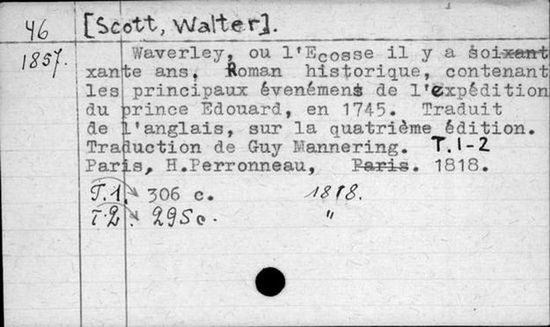 46 [Scott, Walter].
1857. Waverley, ou l'Ecosse il y a soixant
xante ans. Roman historique, contenant
les principaux événemens de l'expédition
du prince Edouard, en 1745. Traduit
de l'anglais, sur la quatrième édition.
Traduction de Guy Mannering. T.1-2
Paris, H.Perronneau, Paris. 1818.
T.1. 306 c. 1818.
T.2. 295 c. "